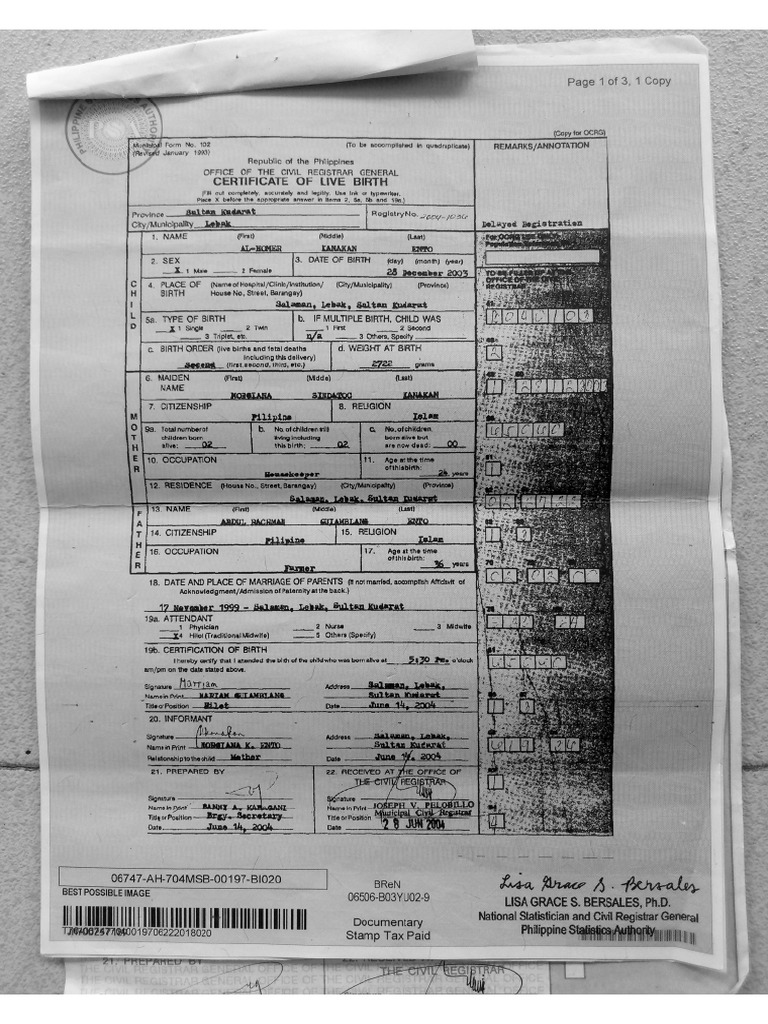 Page 1 of 3, 1 Copy
(Copy for OCRG)
Municipal Form No. 102
(Revised January 1993)
(To be accomplished in quadruplicate)
REMARKS/ANNOTATION
Republic of the Philippines
OFFICE OF THE CIVIL REGISTRAR GENERAL
CERTIFICATE OF LIVE BIRTH
(Fill out completely, accurately and legibly. Use ink or typewriter.
Place X before the appropriate answer in items 2, 5a, 5b and 19a.)
Province Sultan Kudarat
Registry No.
City/Municipality Lebak
Delayed Registration
CHILD
1. NAME (First) (Middle) (Last)
AL-HOMER KAMAKAN ENTO
2. SEX
X 1 Male 2 Female
3. DATE OF BIRTH (day) (month) (year)
28 December 2003
4. PLACE OF BIRTH (Name of Hospital/Clinic/Institution/ House No., Street, Barangay) (City/Municipality) (Province)
Salaman, Lebak, Sultan Kudarat
TO BE FILLED UP AT THE
OFFICE OF THE CIVIL
REGISTRAR
5a. TYPE OF BIRTH
X 1 Single 2 Twin
3 Triplet, etc.
b. IF MULTIPLE BIRTH, CHILD WAS
1 First 2 Second
n/a 3 Others, Specify
c. BIRTH ORDER (live births and fetal deaths
including this delivery)
Second (first, second, third, etc.)
d. WEIGHT AT BIRTH
2722 grams
MOTHER
6. MAIDEN NAME (First) (Middle) (Last)
NORGIANA SINDATOC KAMAKAN
7. CITIZENSHIP
Filipino
8. RELIGION
Islam
9a. Total number of
children born
alive: 02
b. No. of children still
living including
this birth: 02
c. No. of children
born alive but
are now dead: 00
10. OCCUPATION
Housekeeper
11. Age at the time
of this birth:
24 years
12. RESIDENCE (House No., Street, Barangay) (City/Municipality) (Province)
Salaman, Lebak, Sultan Kudarat
FATHER
13. NAME (First) (Middle) (Last)
ABDUL RACHMAN GUIAMBLANG ENTO
14. CITIZENSHIP
Filipino
15. RELIGION
Islam
16. OCCUPATION
Farmer
17. Age at the time
of this birth:
36 years
18. DATE AND PLACE OF MARRIAGE OF PARENTS (If not married, accomplish Affidavit of
Acknowledgment/Admission of Paternity at the back.)
17 November 1999 - Salaman, Lebak, Sultan Kudarat
19a. ATTENDANT
1 Physician 2 Nurse 3 Midwife
X4 Hilot (Traditional Midwife) 5 Others (Specify)
19b. CERTIFICATION OF BIRTH
I hereby certify that I attended the birth of the child who was born alive at 5:30 Pm. o'clock
am/pm on the date stated above.
Signature Marriam
Address Salaman, Lebak,
Name in Print MARIAM GUIAMBLANG
Sultan Kudarat
Title or Position Hilot
Date June 14, 2004
20. INFORMANT
Signature
Address Salaman, Lebak,
Name in Print NORGIANA K. ENTO
Sultan Kudarat
Relationship to the child Mother
Date June 14, 2004
21. PREPARED BY
Signature
Name in Print
Title or Position Brgy. Secretary
Date June 14, 2004
22. RECEIVED AT THE OFFICE OF
THE CIVIL REGISTRAR
Signature
Name in Print JOSEPH V. PELOBILLO
Title or Position Municipal Civil Registrar
Date 28 JUN 2004
06747-AH-704MSB-00197-BI020
BEST POSSIBLE IMAGE
BReN
06506-B03YU02-9
Documentary
Stamp Tax Paid
Lisa Grace S. Bersales
LISA GRACE S. BERSALES, Ph.D.
National Statistician and Civil Registrar General
Philippine Statistics Authority
21. PREPARED BY
THE CIVIL REGISTRAR